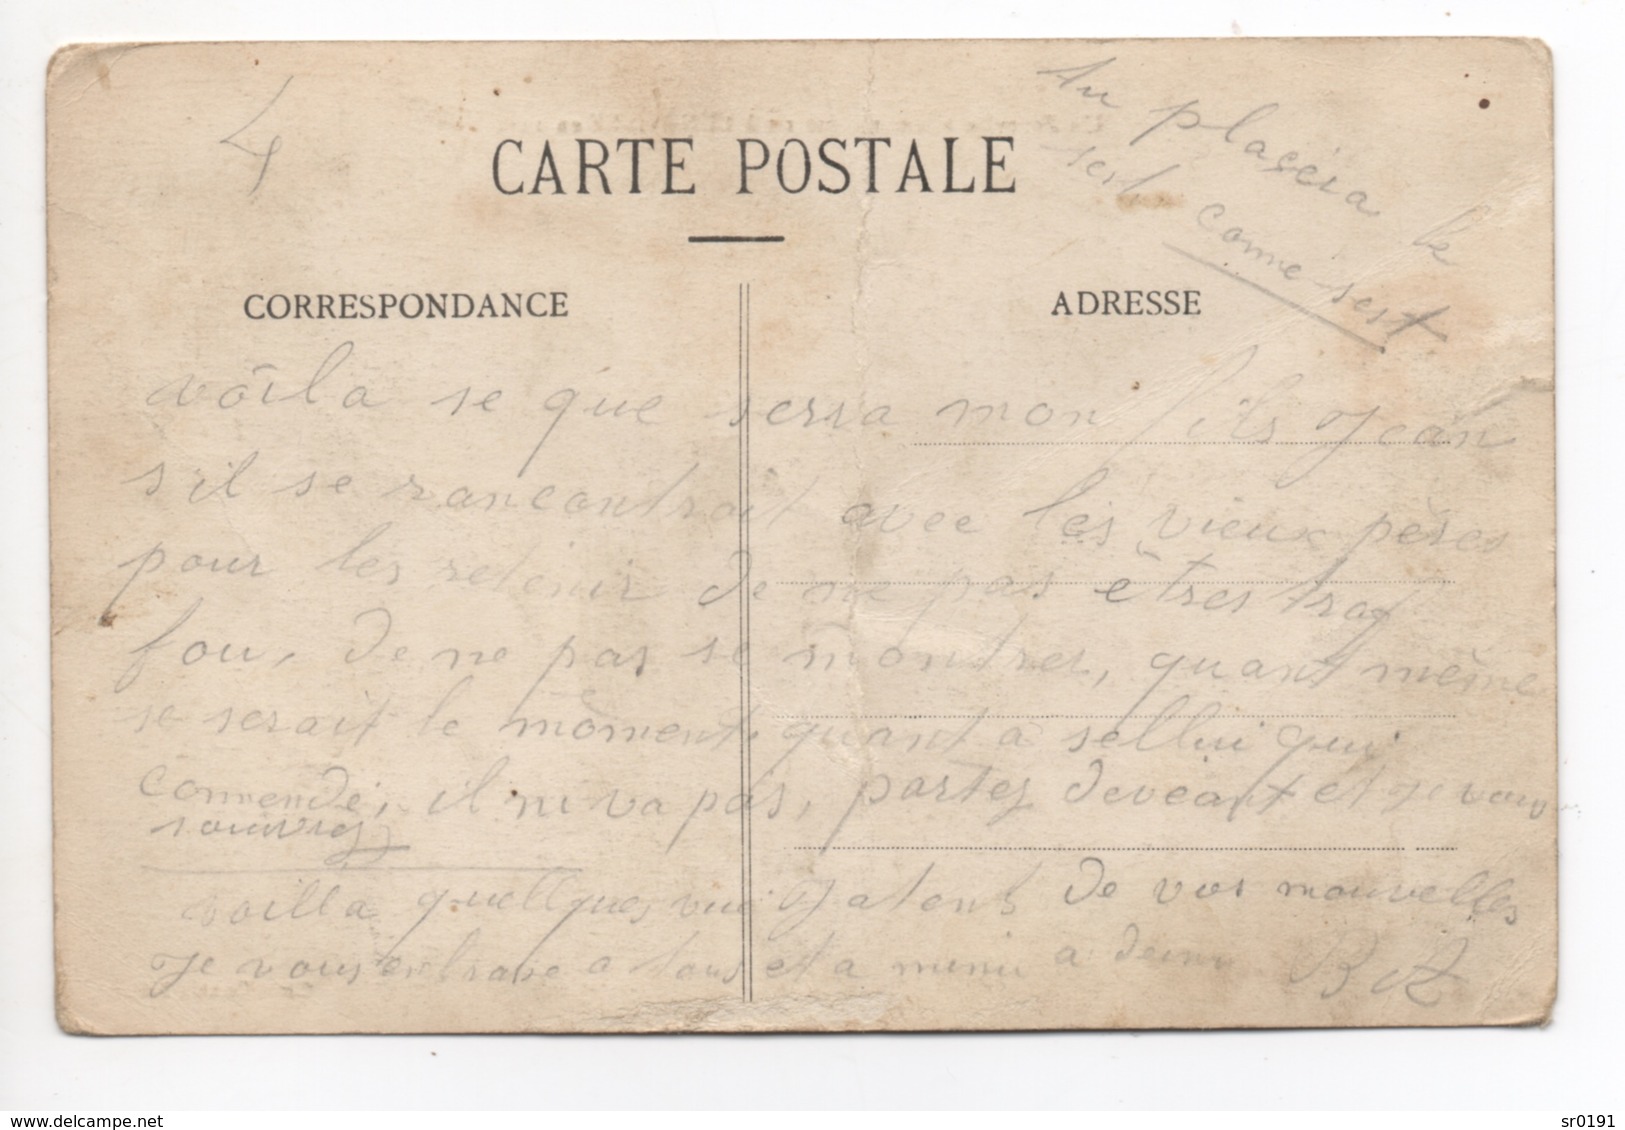 4
Tu placéra le
sest comme sest
CARTE POSTALE
CORRESPONDANCE
ADRESSE
voila se que serra mon fils Jean
s'il se rancontrait avec les vieux pères
pour les retenir de ne pas êtres trop
fou, de ne pas se montrer, quant même
se serait le moment, quant a sellui qui
commende, il ni va pas, partez deveant et je vous
souvrez
voilla quelques vue J atend de vos nouvelles
Je vous enbrase a tous et a mimi a
www.delcampe.net
sr0191